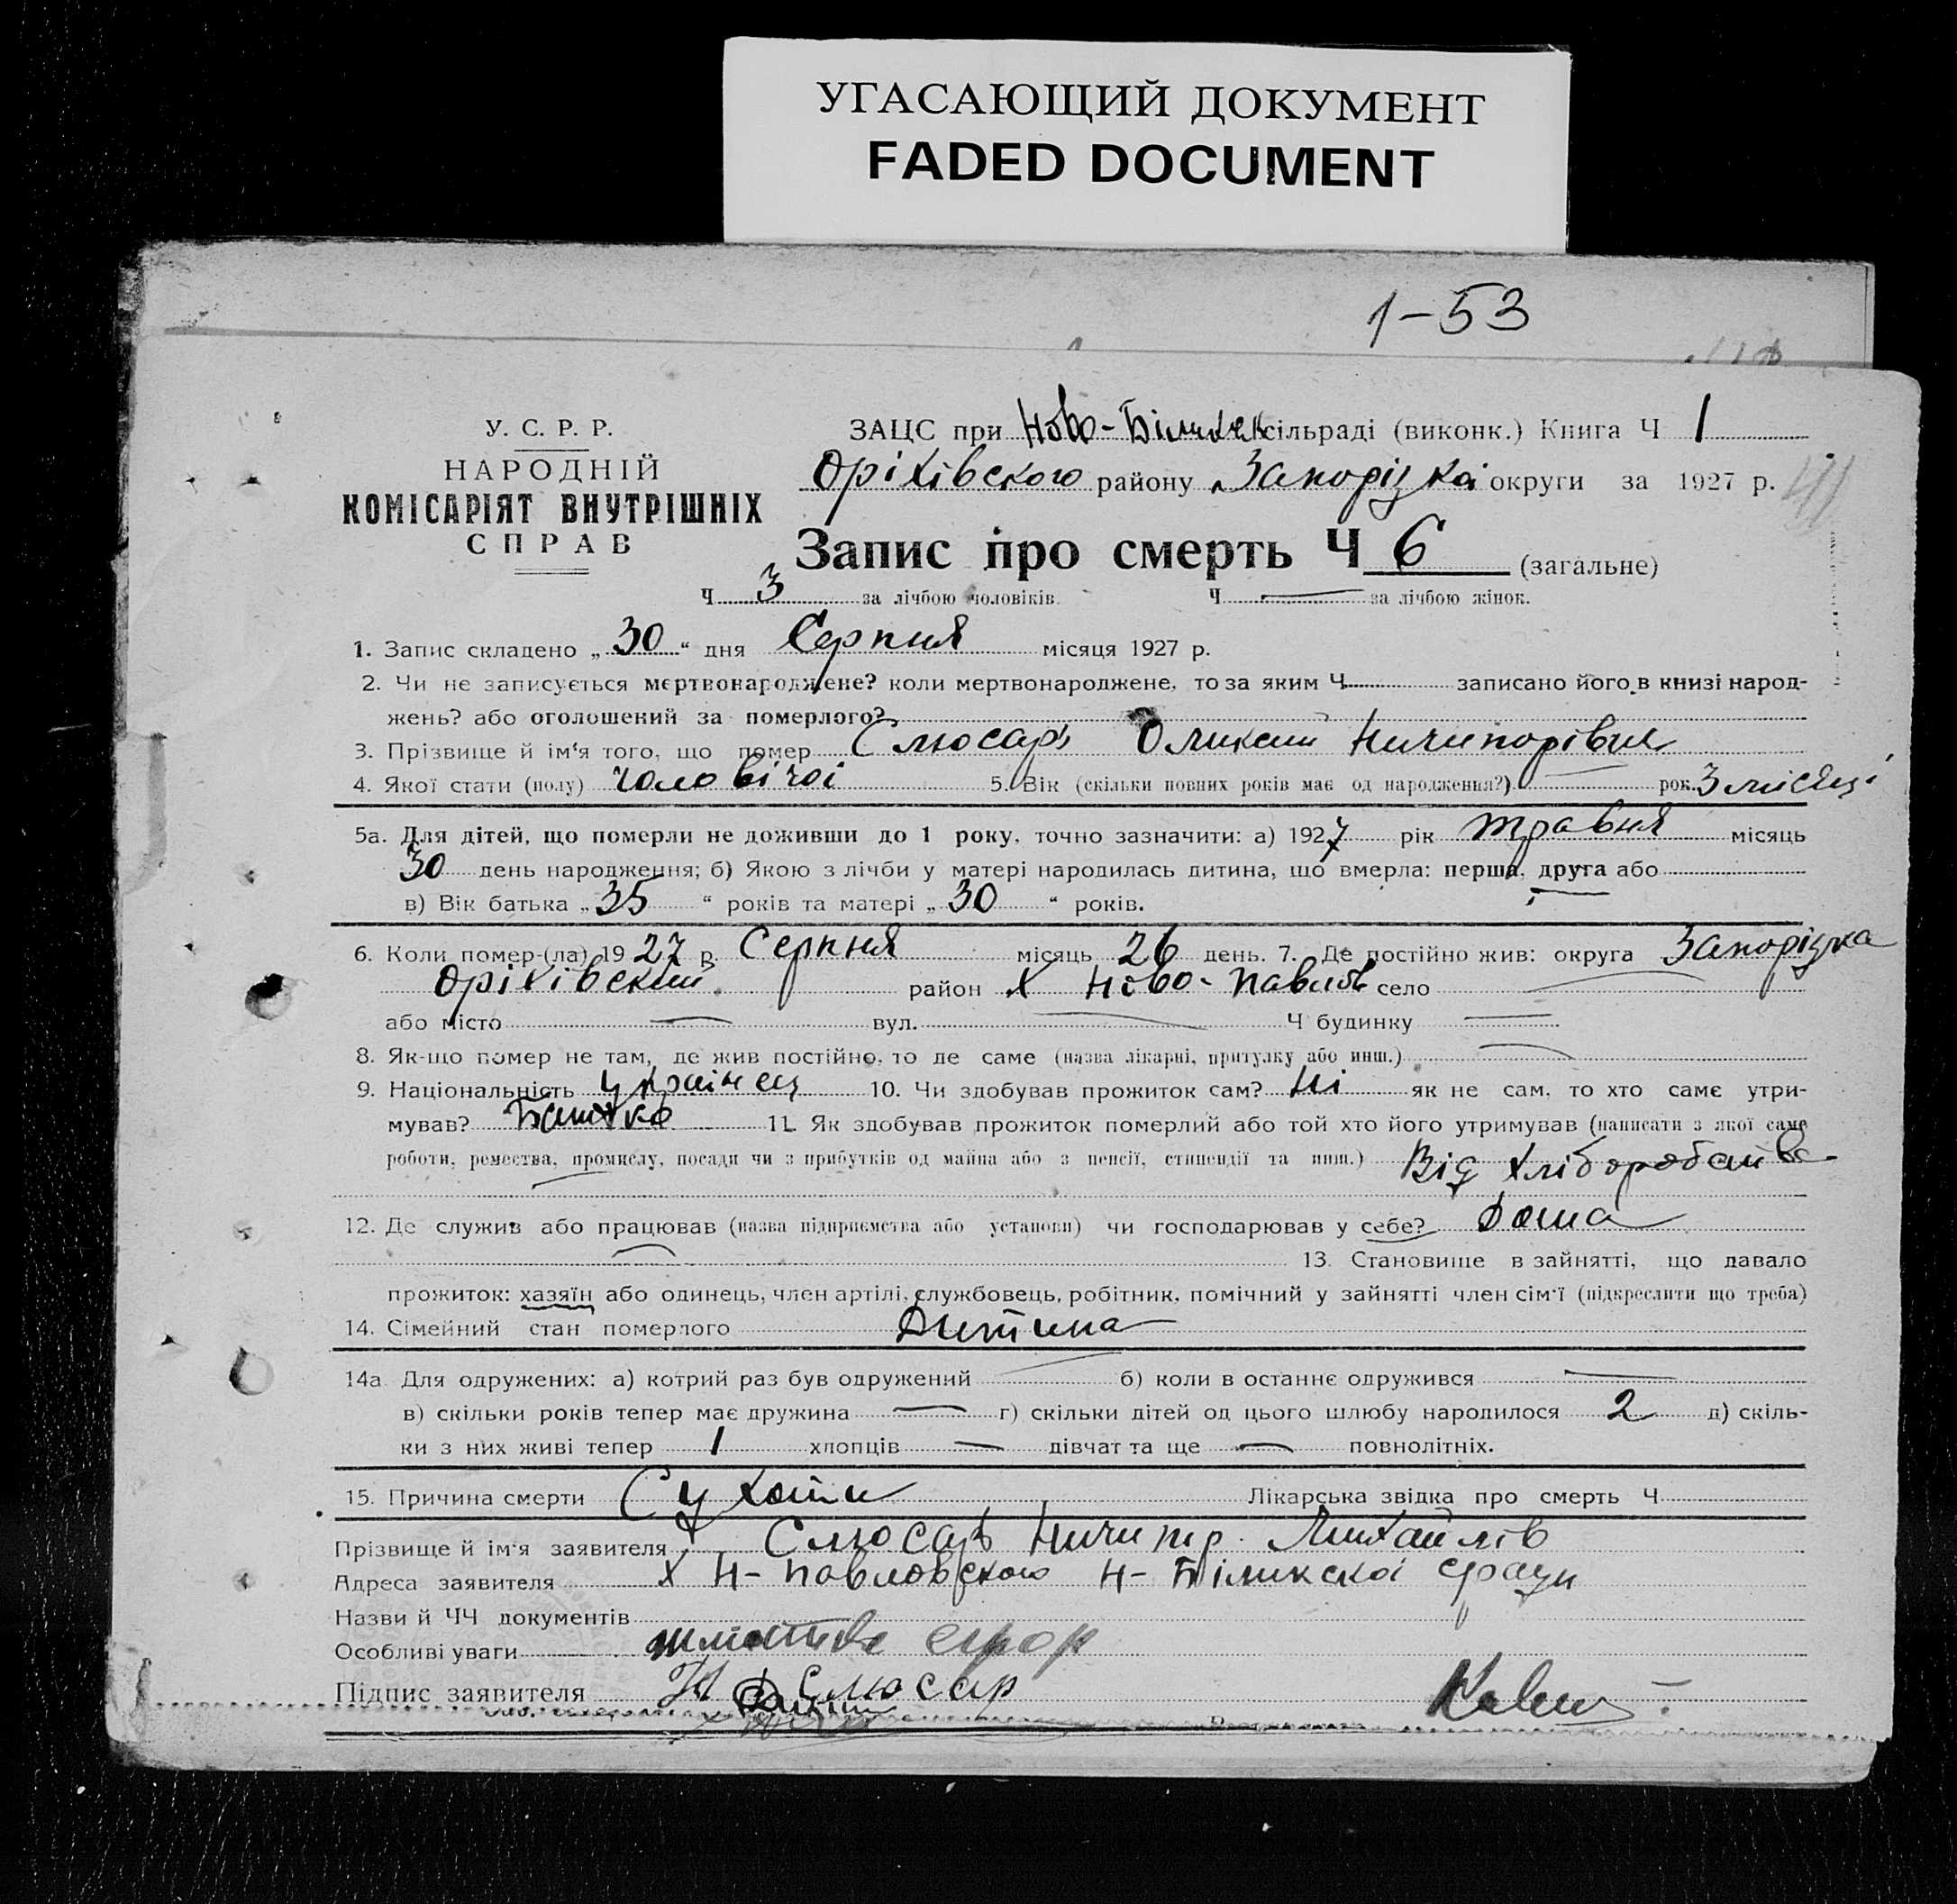 УГАСАЮЩИЙ ДОКУМЕНТ
FADED DOCUMENT
1-53
У. С. Р. Р.
НАРОДНІЙ
КОМІСАРІЯТ ВНУТРІШНІХ
СПРАВ
ЗАЦС при Ново-Білик сільраді (виконк.) Книга Ч 1
Оріхівского району Запорізкоі округи за 1927 р.
Запис про смерть Ч 6 (загальне)
Ч 3 за лічбою чоловіків. Ч — за лічбою жінок.
1. Запис складено „ 30 “ дня Серпня місяця 1927 р.
2. Чи не записується мертвонароджене? коли мертвонароджене, то за яким Ч записано його в книзі народ-
жень? або оголошений за померлого?
3. Прізвище й ім'я того, що помер Слюсарь Оликсій Ничипорівич
4. Якої стати (полу) чоловічоі 5. Вік (скільки повних років має од народження?) — рок. 3 місяці
5а. Для дітей, що померли не доживши до 1 року, точно зазначити: а) 1927 рік травня місяць
30 день народження; б) Якою з лічби у матері народилась дитина, що вмерла: перша, друга або
в) Вік батька „ 35 “ років та матері „ 30 “ років.
6. Коли помер-(ла) 1927 р. Серпня місяць 26 день. 7. Де постійно жив: округа Запорізка
Оріхівский район Х Ново-Павлов село —
або місто — вул. — Ч будинку —
8. Як-що помер не там, де жив постійно, то де саме (назва лікарні, притулку або инш.) —
9. Національність українец 10. Чи здобував прожиток сам? Ні як не сам, то хто саме утри-
мував? Батько 11. Як здобував прожиток померлий або той хто його утримував (написати з якої саме
роботи, ремества, промислу, посади чи з прибутків од майна або з пенсії, стипендії та инш.) Від хліборобства
12. Де служив або працював (назва підприємства або установи) чи господарював у себе? Дома
— 13. Становище в зайнятті, що давало
прожиток: хазяїн або одинець, член артілі, службовець, робітник, помічний у зайнятті член сім'ї (підкреслити що треба)
14. Сімейний стан померлого Дитина
14а Для одружених: а) котрий раз був одружений — б) коли в останнє одружився —
в) скільки років тепер має дружина — г) скільки дітей од цього шлюбу народилося 2 д) скіль-
ки з них живі тепер 1 хлопців — дівчат та ще — повнолітніх.
15. Причина смерти Сухоти Лікарська звідка про смерть Ч
Прізвище й ім'я заявителя Слюсарь Ничипір Михайлів
Адреса заявителя х Н-Павловского Н-Біликскоі с/ради
Назви й ЧЧ документів
Особливі уваги
Підпис заявителя Н Слюсар